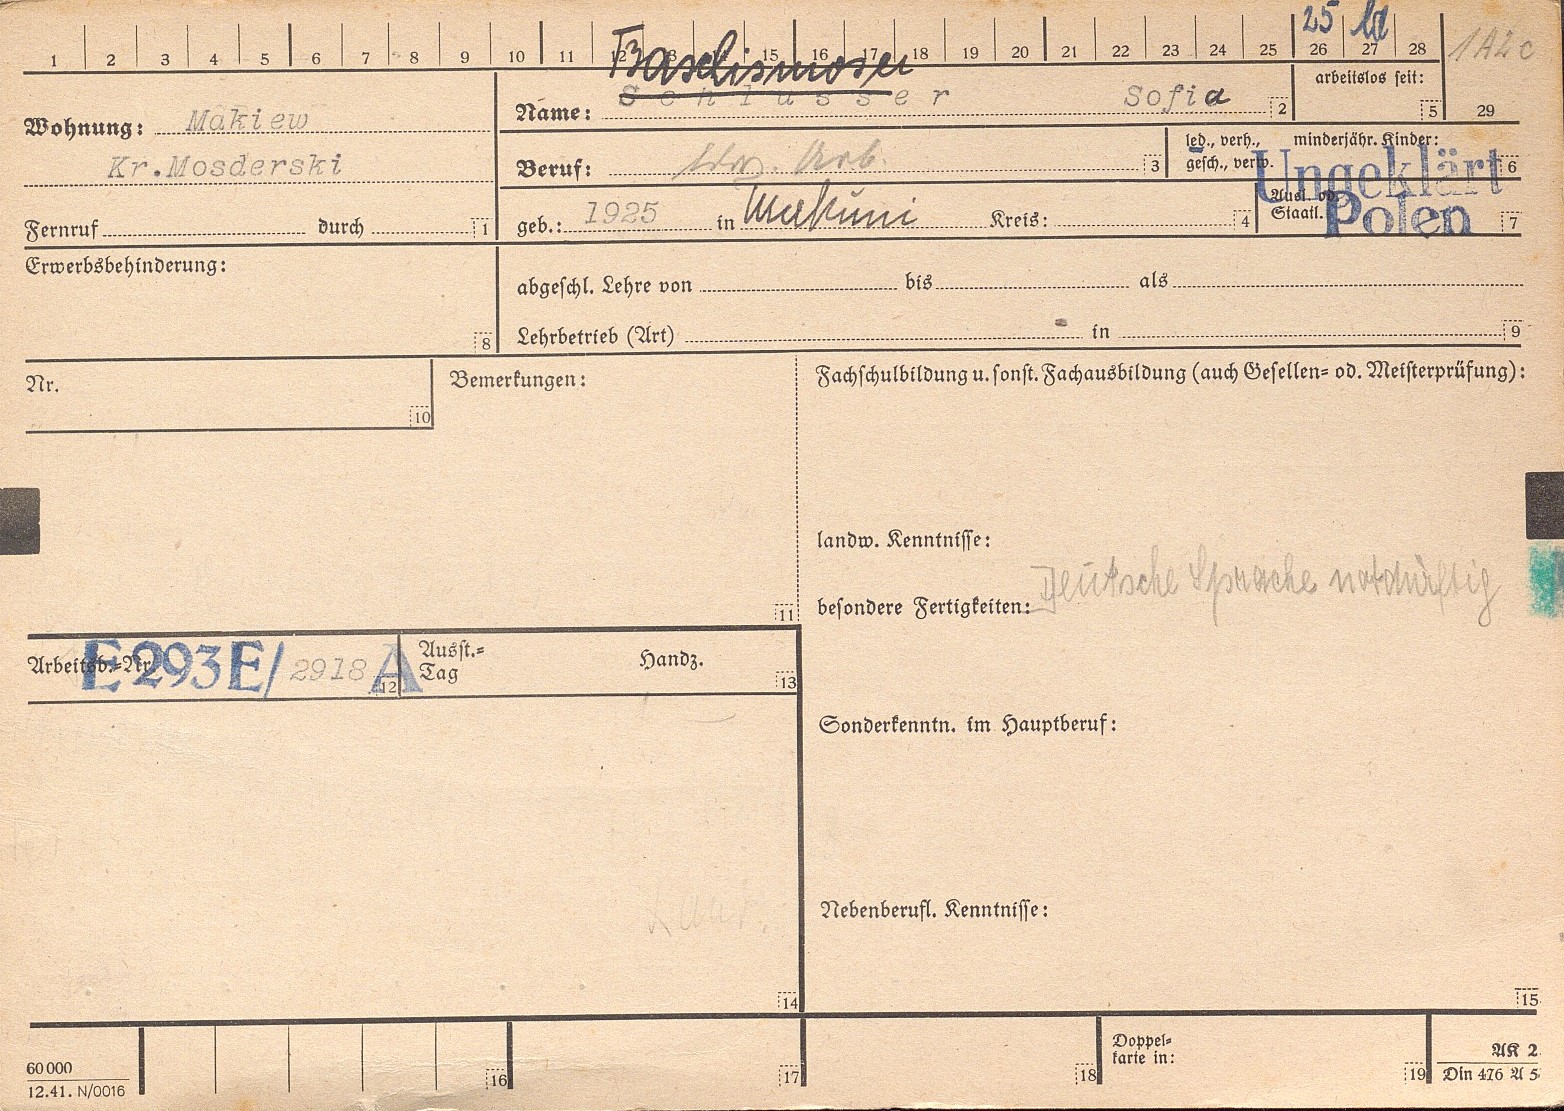 25 ld
1A2c
1 2 3 4 5 6 7 8 9 10 11 12 13 14 15 16 17 18 19 20 21 22 23 24 25 26 27 28
Baschismosei
Wohnung: Makiew
Kr.Mosderski
Fernruf durch 1
Name: Schlusser Sofia 2
arbeitslos seit: 5
29
Beruf: Arb. 3
led., verh., gesch., verw.
minderjähr. Kinder: 6
Ungeklärt
geb.: 1925 in Kreis: 4
Ausl. od. Staatl. 7
Polen
Erwerbsbehinderung: 8
abgeschl. Lehre von bis als
Lehrbetrieb (Art) in 9
Nr. 10
Bemerkungen: 11
Fachschulbildung u. sonst. Fachausbildung (auch Gesellen- od. Meisterprüfung):
landw. Kenntnisse:
besondere Fertigkeiten: Deutsche Sprache notdürftig
Arbeitsb.-Nr. E 293 E/ 2918 A 12
Ausst.-Tag Handz. 13
Sonderkenntn. im Hauptberuf:
Nebenberufl. Kenntnisse:
14
15
60 000
12.41. N/0016
16
17
18
Doppel-
karte in:
19
AK 2
Din 476 A 5